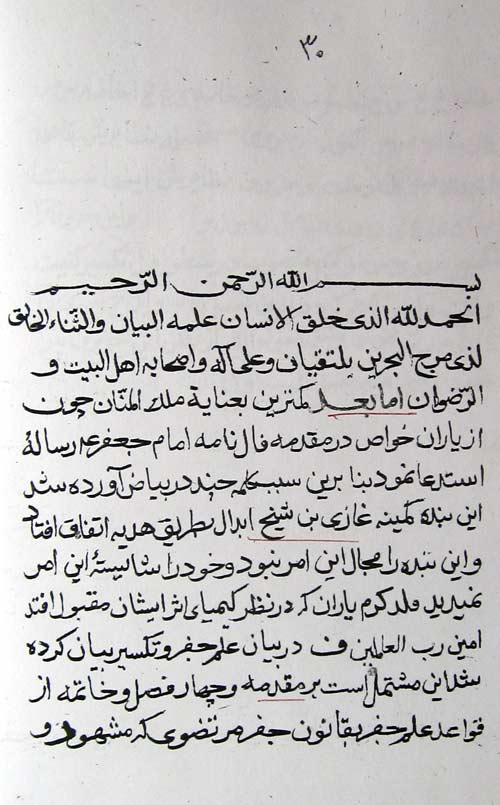 ۳۰
بسم الله الرّحمن الرّحیم
الحمد لله الذی خلق الانسان علمه البیان والثناء الخالق
لذی مرج البحرین یلتقیان وعلی آله واصحابه اهل البیت و
الرّضوان اما بعد کمترین بعنایة ملك المنّان چون
از یاران خواص در مقدمه فال نامه امام جعفر رسالهٔ
استدعا نمود بنا برین سبب کلمهٔ چند در بیاض آورده شد
این بنده کمینه غازی بن شیخ ابدال بطریق هدیه اتفاق افتاد
و این بنده را مجال این امر نبود و خود را شایستهٔ این امر
نمیدید ولد کرم یاران که در نظر کیمیای اثر ایشان مقبول افتد
امین رب العلمین ف در بیان علم جفر و تکسیر بیان کرده
شد این مشتمل است بر مقدمه و چهار فصل و خاتمه از
قواعد علم جفر بقانون جفر مرتضوی که مشهور و